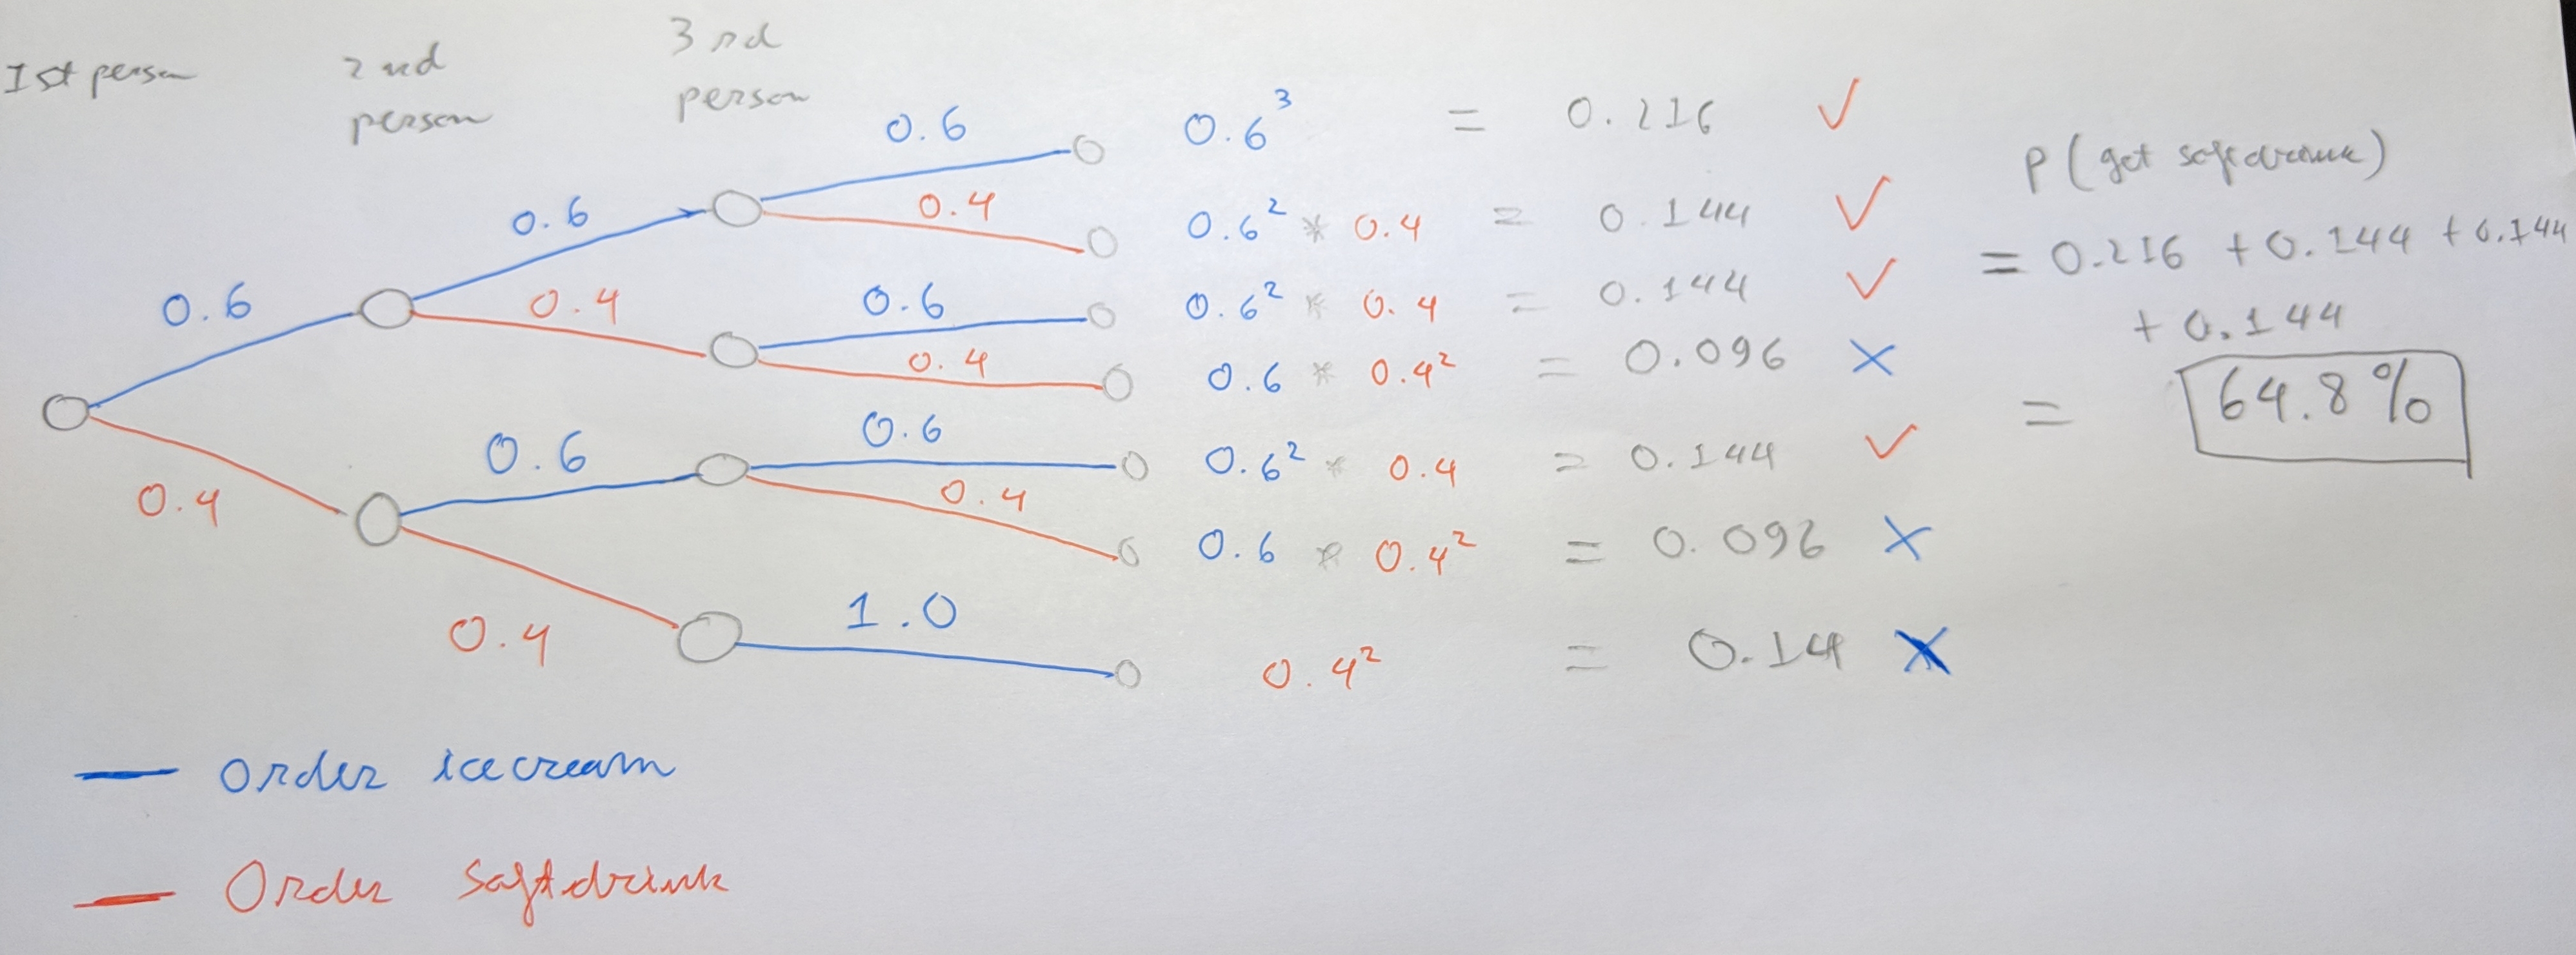 1st person
2nd
person
3rd
person
0.6
0.4
0.6
0.4
0.6
0.4
0.6
0.4
0.6
0.4
0.6
0.4
1.0
0.6³ = 0.216 ✓
0.6² * 0.4 = 0.144 ✓
0.6² * 0.4 = 0.144 ✓
0.6 * 0.4² = 0.096 ×
0.6² * 0.4 = 0.144 ✓
0.6 * 0.4² = 0.096 ×
0.4² = 0.14 ×
P(get softdrink)
= 0.216 + 0.144 + 0.144
+ 0.144
= 64.8%
Order icecream
Order Softdrink